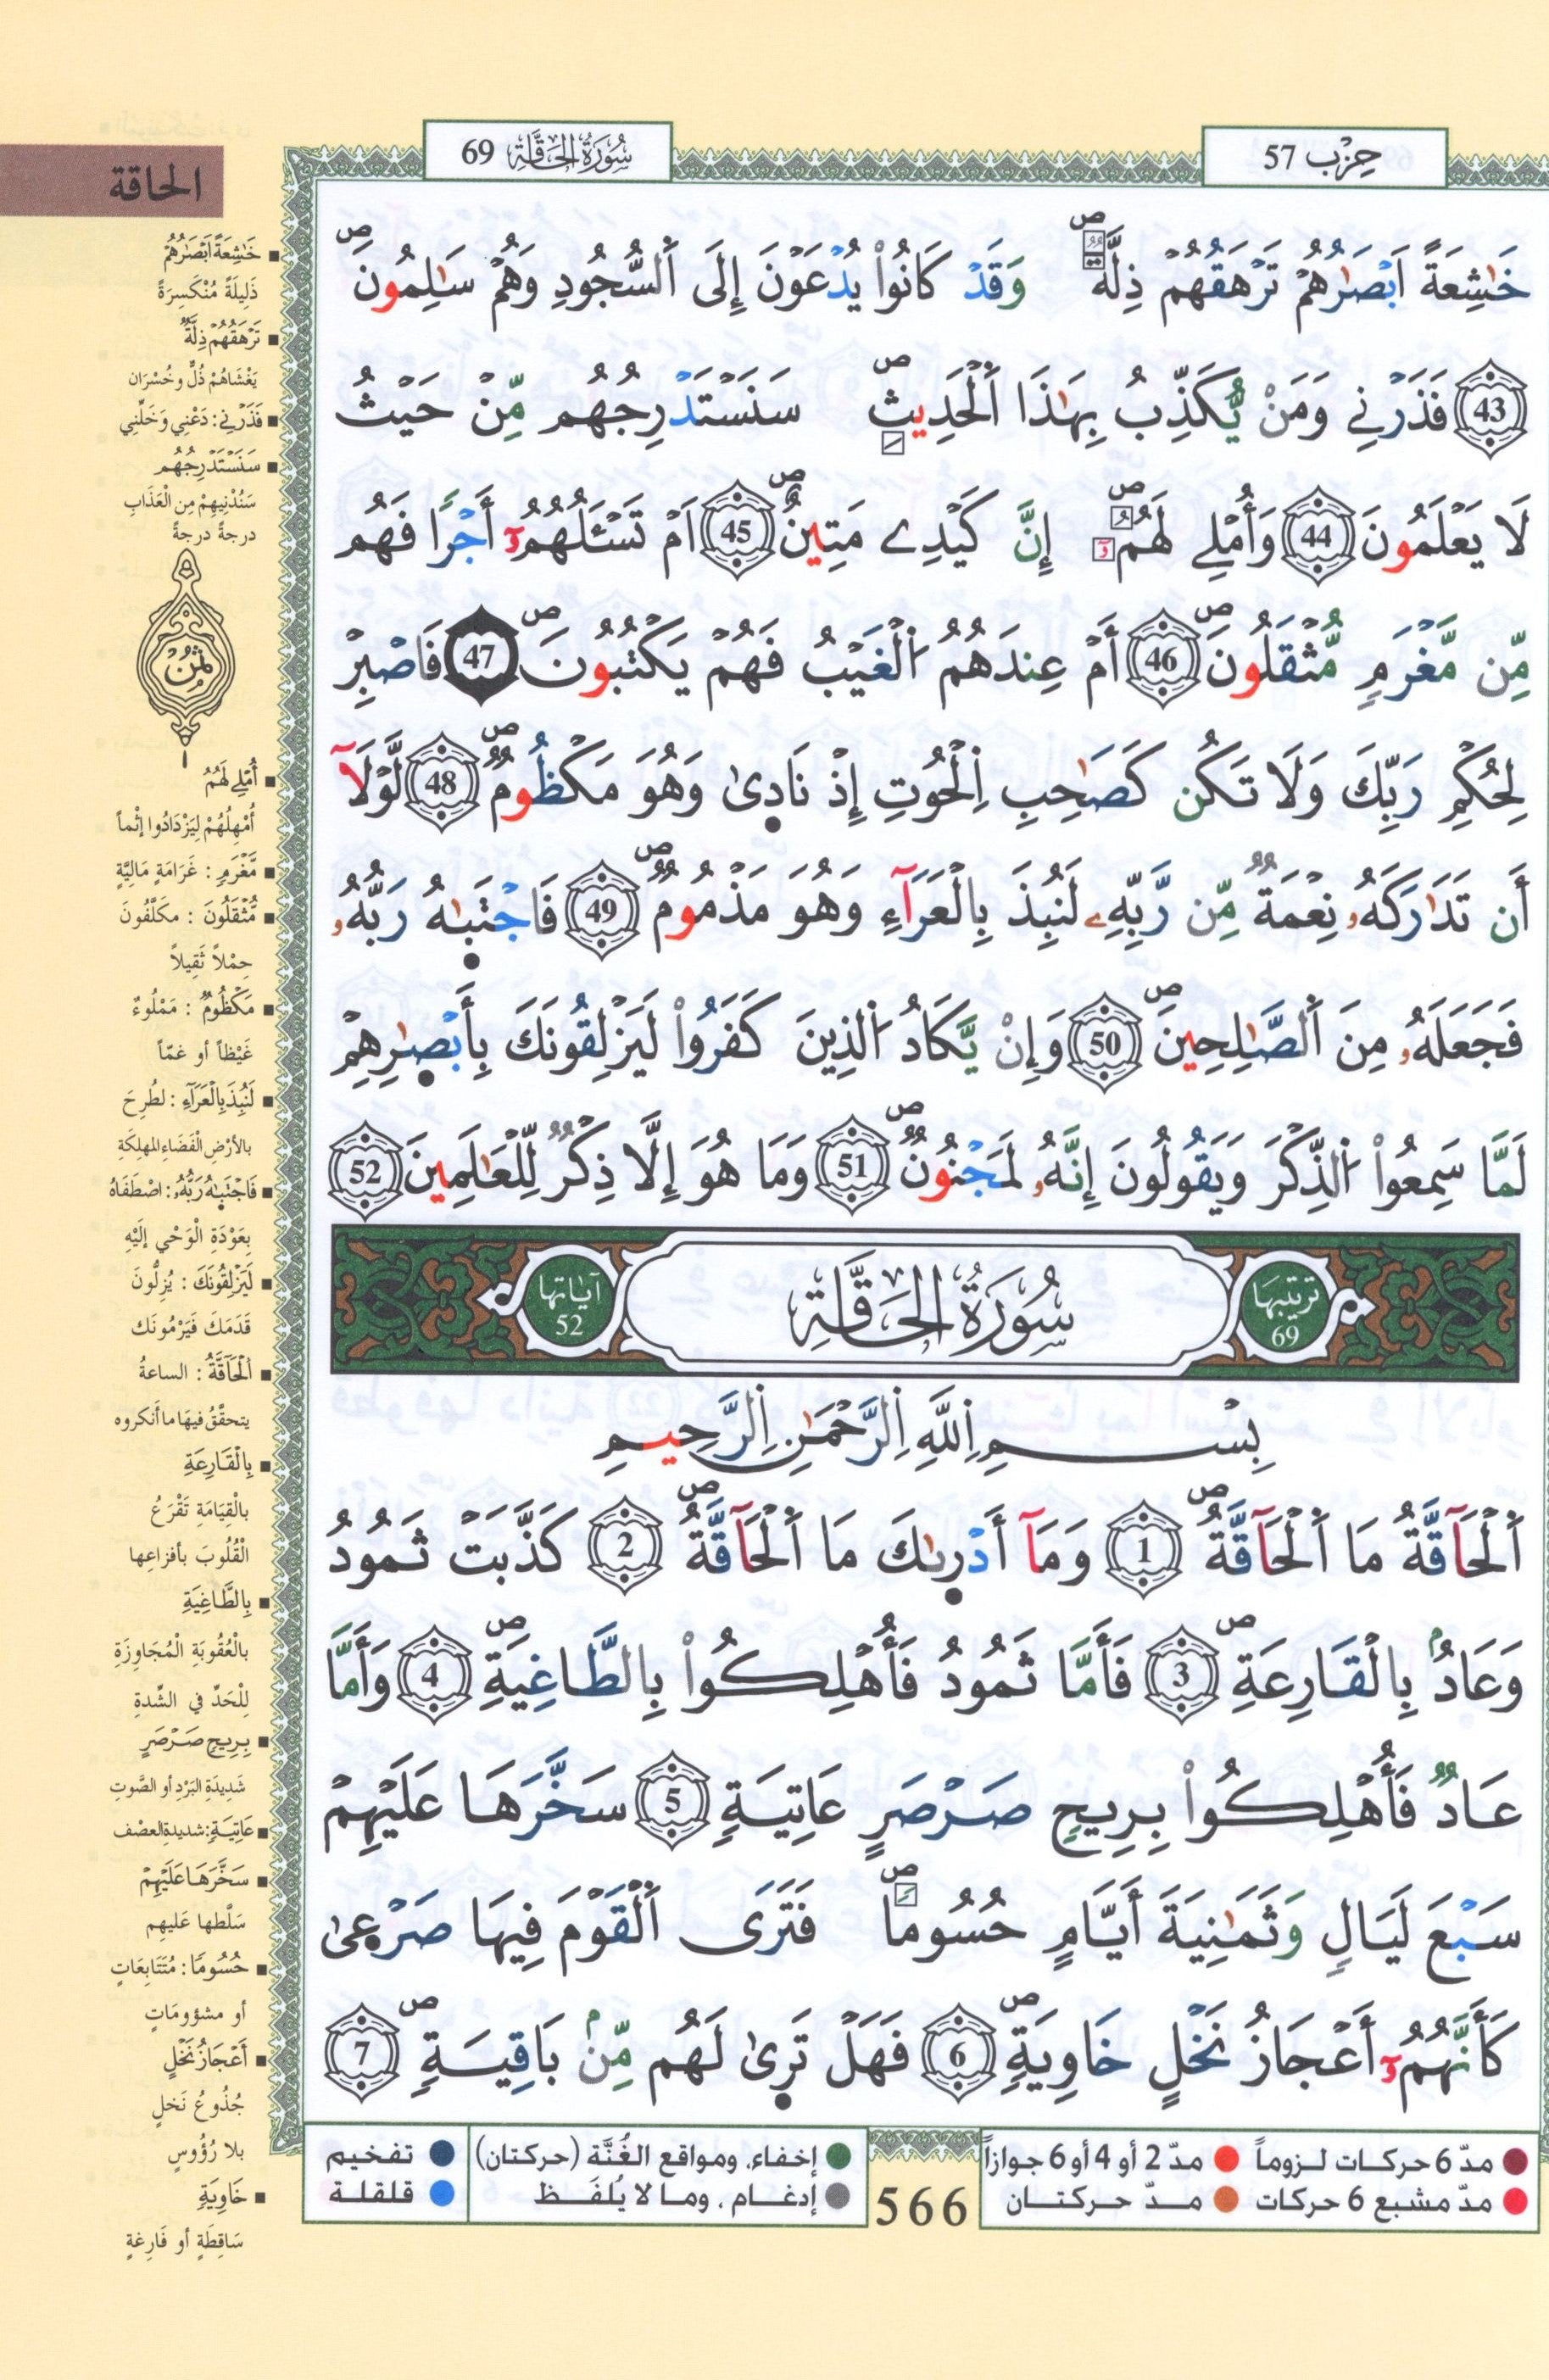 حِزْب 57
سُورَةُ الحَاقَّة 69
الحاقة
خَٰشِعَةً اَبْصَٰرُهُمْ تَرْهَقُهُمْ ذِلَّةٞ ۖ وَقَدْ كَانُواْ يُدْعَوْنَ إِلَى اَ۬لسُّجُودِ وَهُمْ سَٰلِمُونَ ۖ
43 فَذَرْنِے وَمَنْ يُّكَذِّبُ بِهَٰذَا اَ۬لْحَدِيثِ ۖ سَنَسْتَدْرِجُهُم مِّنْ حَيْثُ
لَا يَعْلَمُونَ 44 وَأُمْلِے لَهُمُۥٓ ۖ إِنَّ كَيْدِے مَتِينٌ ۖ 45 اَمْ تَسْـَٔلُهُمُۥٓ أَجْرٗا فَهُم
مِّن مَّغْرَمٖ مُّثْقَلُونَ ۖ 46 أَمْ عِندَهُمُ اُ۬لْغَيْبُ فَهُمْ يَكْتُبُونَ ۖ 47 فَاصْبِرْ
لِحُكْمِ رَبِّكَ وَلَا تَكُن كَصَٰحِبِ اِ۬لْحُوتِ إِذْ نَادِىٰ وَهُوَ مَكْظُومٞ ۖ 48 لَّوْلَآ
أَن تَدَٰرَكَهُۥ نِعْمَةٞ مِّن رَّبِّهِۦ لَنُبِذَ بِالْعَرَآءِ وَهُوَ مَذْمُومٞ ۖ 49 فَاجْتَبٰ۪هُ رَبُّهُۥ
فَجَعَلَهُۥ مِنَ اَ۬لصَّٰلِحِينَ ۖ 50 وَإِنْ يَّكَادُ اُ۬لذِينَ كَفَرُواْ لَيَزْلِقُونَكَ بِأَبْصٰ۪رِهِمْ
لَمَّا سَمِعُواْ اُ۬لذِّكْرَ وَيَقُولُونَ إِنَّهُۥ لَمَجْنُونٞ ۖ 51 وَمَا هُوَ إِلَّا ذِكْرٞ لِّلْعَٰلَمِينَ 52
ترتيبها 69 سُورَةُ الحَاقَّة آياتها 52
بِسْمِ اِ۬للَّهِ اِ۬لرَّحْمَٰنِ اِ۬لرَّحِيمِ
اَ۬لْحَآقَّةُ مَا اَ۬لْحَآقَّةُ ۖ 1 وَمَآ أَدْر۪ىٰكَ مَا اَ۬لْحَآقَّةُ ۖ 2 كَذَّبَتْ ثَمُودُ
وَعَادُۢ بِالْقَارِعَةِ ۖ 3 فَأَمَّا ثَمُودُ فَأُهْلِكُواْ بِالطَّاغِيَةِ ۖ 4 وَأَمَّا
عَادٞ فَأُهْلِكُواْ بِرِيحٖ صَرْصَرٍ عَاتِيَةٖ 5 سَخَّرَهَا عَلَيْهِمْ
سَبْعَ لَيَالٖ وَثَمَٰنِيَةَ أَيَّامٍ حُسُوماٗ ۖ فَتَرَى اَ۬لْقَوْمَ فِيهَا صَرْع۪ىٰ
كَأَنَّهُمُۥٓ أَعْجَازُ نَخْلٍ خَاوِيَةٖ ۖ 6 فَهَلْ تَر۪ىٰ لَهُم مِّنۢ بَاقِيَةٖ ۖ 7
خَٰشِعَةً اَبْصَٰرُهُمْ
ذَلِيلَةً مُنْكَسِرَةً
تَرْهَقُهُمْ ذِلَّةٞ
يَغْشَاهُمْ ذُلٌّ وخُسْرَان
فَذَرْنِے: دَعْنِي وَخَلِّنِي
سَنَسْتَدْرِجُهُم
سَنُدْنِيهِمْ مِن الْعَذَابِ
درجةً درجةً
ثُمُنْ
أُمْلِے لَهُمُ
أُمْهِلُهُمْ لِيَزْدَادُوا إثْماً
مَّغْرَمٖ : غَرَامَةٍ مَالِيَّةٍ
مُّثْقَلُونَ : مكَلَّفُونَ
حِمْلاً ثَقِيلاً
مَكْظُومٞ : مَمْلُوءٌ
غَيْظاً أو غمّاً
لَنُبِذَ بِالْعَرَآءِ : لطُرِحَ
بالأرْضِ الْفَضَاءِ المهلِكَةِ
فَاجْتَبٰ۪هُ رَبُّهُۥ : اصْطَفَاهُ
بِعَوْدَةِ الْوَحْي إلَيْهِ
لَيَزْلِقُونَكَ : يُزِلُّونَ
قَدَمَكَ فَيَرْمُونَك
اَ۬لْحَآقَّةُ : الساعةُ
يتحقَّقُ فيهَا ما أَنكروه
بِالْقَارِعَةِ
بالْقِيَامَةِ تَقْرَعُ
الْقُلُوبَ بأفزاعِها
بِالطَّاغِيَةِ
بالْعُقُوبَةِ الْمُجَاوِزَةِ
لِلْحَدِّ في الشِّدةِ
بِرِيحٖ صَرْصَرٍ
شَدِيدَةِ البَرْدِ أو الصَّوتِ
عَاتِيَةٖ: شديدةِ العصْف
سَخَّرَهَا عَلَيْهِمْ
سَلّطها عَليهِم
حُسُوماٗ : مُتَتَابِعَاتٍ
أو مشؤومَاتٍ
أَعْجَازُ نَخْلٍ
جُذُوعُ نَخلٍ
بلا رُؤُوسٍ
خَاوِيَةٖ
سَاقِطَةٍ أو فَارِغةٍ
مدّ 6 حركات لزوماً مدّ 2 أو 4 أو 6 جوازاً
مدّ مشبع 6 حركات مدّ حركتان
566
إخفاء، ومواقع الغُنَّة (حركتان) تفخيم
إدغام ، وما لا يُلفَظ قلقلة